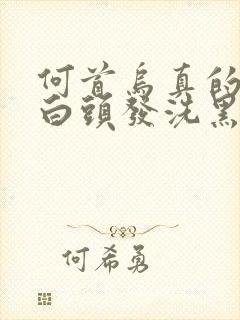 何首烏真的
白頭發洗黑
何希勇